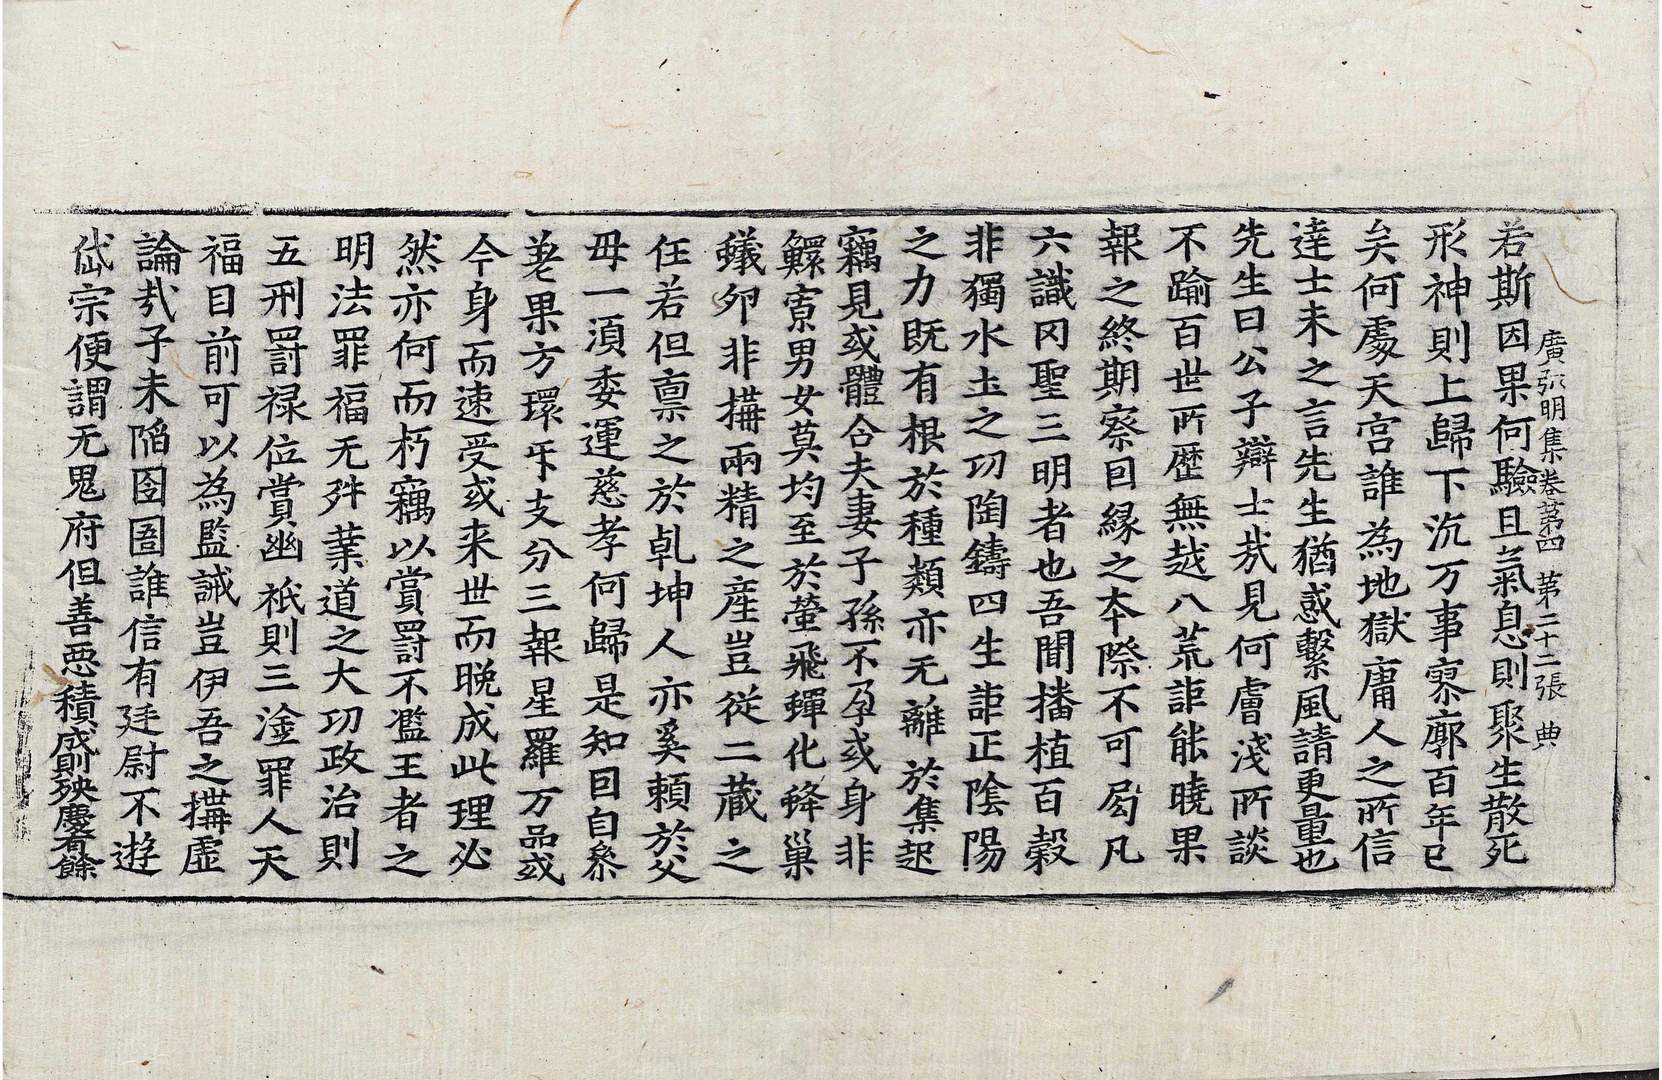 廣弘明集卷第四　第二十二張　典
若斯因果何驗且氣息則聚生散死
形神則上歸下沉万事寥廓百年已
矣何處天宮誰為地獄庸人之所信
達士未之言先生猶惑繫風請更量也
先生曰公子辯士㢤見何膚淺所談
不踰百世所歷無越八荒詎能曉果
報之終期察回縁之夲際不可局凡
六識冈聖三明者也吾聞播植百穀
非獨水土之㓛陶鑄四生詎正陰陽
之力既有根於種類亦无離於集起
竊見或體合夫妻子孫不孕或身非
鰥寡男女莫均至於螢飛蟬化蜂巢
蟻卵非搆兩精之産豈從二藏之
任若但禀之於乹坤人亦奚頼於父
母一湏委運慈孝何歸是知回自參
差果方環乐支分三報星羅万品或
今身而速受或来世而晚成此理必
然亦何而朽竊以賞罸不濫王者之
明法罪福无舛葉道之大㓛政治則
五刑罸禄位賞幽祇則三淦罪人天
福目前可以為監誡豈伊吾之搆虚
論㢤子未陷囹圄誰信有廷尉不遊
岱宗便謂无鬼府但善惡積成則殃慶有餘